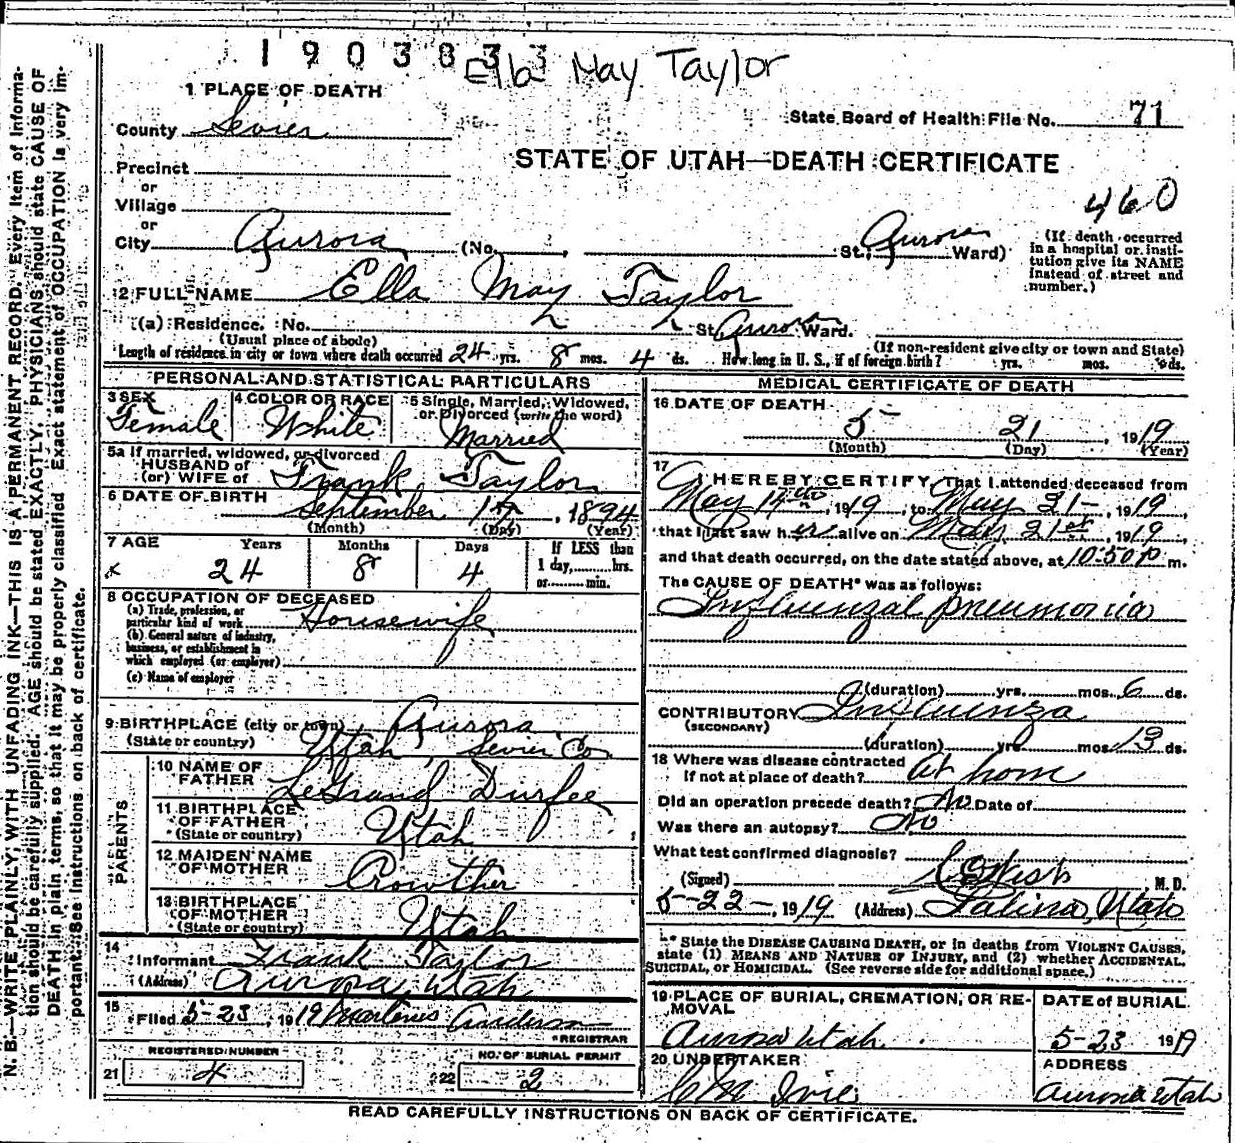 1903833
Ella May Taylor
1 PLACE OF DEATH
State Board of Health File No. 71
County Sevier
STATE OF UTAH—DEATH CERTIFICATE
Precinct
or
Village
460
or
City Aurora (No. , St. Aurora Ward)
(If death occurred in a hospital or institution give its NAME instead of street and number.)
2 FULL NAME Ella May Taylor
(a) Residence. No. St. Aurora Ward.
(Usual place of abode) (If non-resident give city or town and State)
Length of residence in city or town where death occurred 24 yrs. 8 mos. 4 ds. How long in U. S., if of foreign birth? yrs. mos. ds.
PERSONAL AND STATISTICAL PARTICULARS
3 SEX 4 COLOR OR RACE 5 Single, Married, Widowed, or Divorced (write the word)
Female White Married
5a If married, widowed, or divorced
HUSBAND of
(or) WIFE of Frank Taylor
6 DATE OF BIRTH
September 17, 1894
(Month) (Day) (Year)
7 AGE Years Months Days If LESS than
1 day, hrs.
or min.
x 24 8 4
8 OCCUPATION OF DECEASED
(a) Trade, profession, or
particular kind of work Housewife
(b) General nature of industry,
business, or establishment in
which employed (or employer)
(c) Name of employer
9 BIRTHPLACE (city or town) Aurora
(State or country) Utah, Sevier Co.
PARENTS
10 NAME OF
FATHER LeGrand Durfee
11 BIRTHPLACE
OF FATHER
(State or country) Utah
12 MAIDEN NAME
OF MOTHER Crowther
13 BIRTHPLACE
OF MOTHER
(State or country) Utah
14
Informant Frank Taylor
(Address) Aurora, Utah
15
Filed 5-23, 1919 Martenus Anderson
REGISTRAR
REGISTERED NUMBER
21 4
NO. OF BURIAL PERMIT
22 2
MEDICAL CERTIFICATE OF DEATH
16 DATE OF DEATH
5 21, 1919
(Month) (Day) (Year)
17
I HEREBY CERTIFY, That I attended deceased from
May 14th, 1919, to May 21-, 1919,
that I last saw her alive on May 21st, 1919,
and that death occurred, on the date stated above, at 10:50 p m.
The CAUSE OF DEATH* was as follows:
Influenzal pneumonia
(duration) yrs. mos. 6 ds.
CONTRIBUTORY Influenza
(SECONDARY)
(duration) yrs. mos. 13 ds.
18 Where was disease contracted
If not at place of death? at hom
Did an operation precede death? No Date of
Was there an autopsy? No
What test confirmed diagnosis?
(Signed) West M. D.
5-22-, 1919 (Address) Salina, Utah
* State the DISEASE CAUSING DEATH, or in deaths from VIOLENT CAUSES,
state (1) MEANS AND NATURE OF INJURY, and (2) whether ACCIDENTAL,
SUICIDAL, or HOMICIDAL. (See reverse side for additional space.)
19 PLACE OF BURIAL, CREMATION, OR RE-
MOVAL
Aurora Utah
DATE of BURIAL
5-23 1919
20 UNDERTAKER
Ivie
ADDRESS
Aurora Utah
READ CAREFULLY INSTRUCTIONS ON BACK OF CERTIFICATE.
N. B.—WRITE PLAINLY, WITH UNFADING INK—THIS IS A PERMANENT RECORD. Every item of Informa-
tion should be carefully supplied. AGE should be stated EXACTLY. PHYSICIANS should state CAUSE OF
DEATH in plain terms, so that it may be properly classified. Exact statement of OCCUPATION is very im-
portant. See instructions on back of certificate.